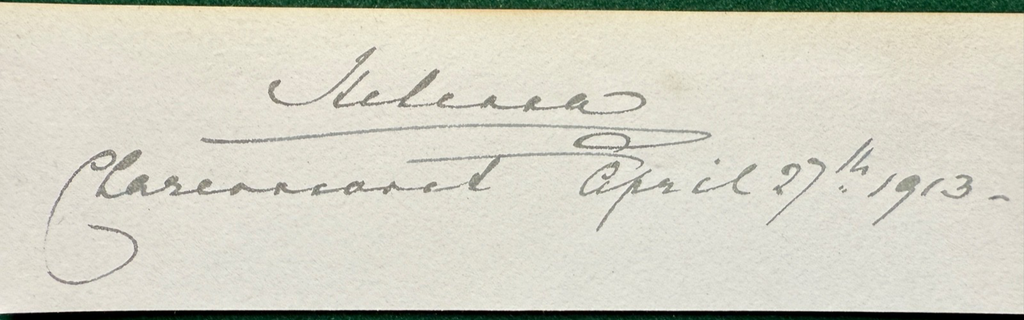 Helena
Claremont April 27th 1913-